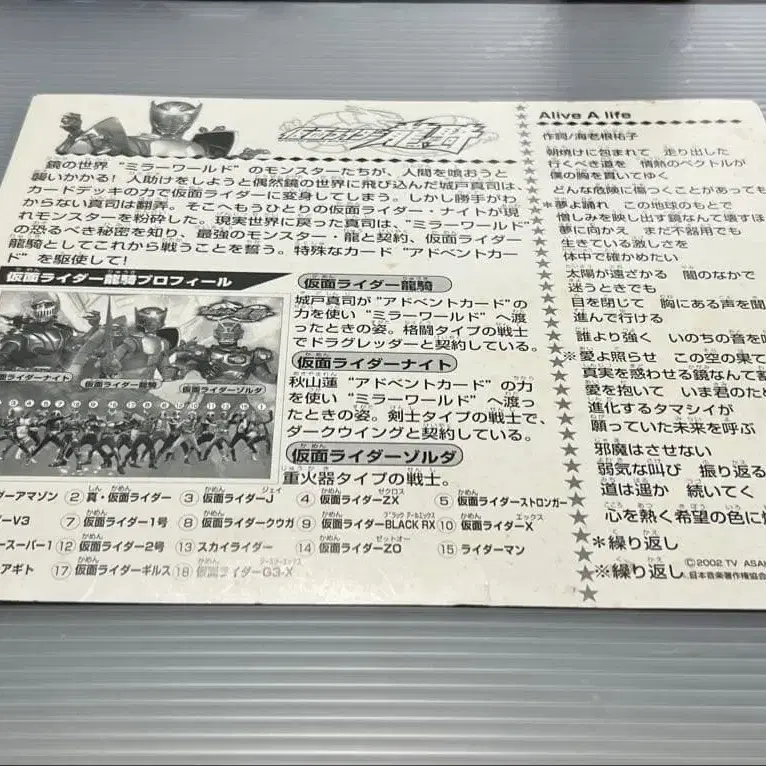 仮面ライダー龍騎
鏡の世界 "ミラーワールド" のモンスターたちが、人間を喰おうと
襲いかかる! 人助けをしようと偶然鏡の世界に飛び込んだ城戸真司は、
カードデッキの力で仮面ライダーに変身してしまう。しかし勝手がわ
からない真司は翻弄。そこへもうひとりの仮面ライダー・ナイトが現
れモンスターを粉砕した。現実世界に戻った真司は、"ミラーワールド"
の恐るべき秘密を知り、最強のモンスター・龍と契約、仮面ライダー
龍騎としてこれから戦うことを誓う。特殊なカード "アドベントカー
ド" を駆使して!
仮面ライダー龍騎プロフィール
面ライダーナイト
仮面ライダー龍騎
仮面ライダーゾルダ
仮面ライダー龍騎
城戸真司が "アドベントカード"の
力を使い "ミラーワールド" へ渡
ったときの姿。格闘タイプの戦士
でドラグレッダーと契約している。
仮面ライダーナイト
秋山蓮 "アドベントカード" の力
を使い "ミラーワールド" へ渡っ
たときの姿。剣士タイプの戦士で、
ダークウイングと契約している。
仮面ライダーゾルダ
重火器タイプの戦士。
ダーアマゾン ② 真・仮面ライダー ③ 仮面ライダーJ ④ 仮面ライダーZX ⑤ 仮面ライダーストロンガー
ーV3 ⑦ 仮面ライダー1号 ⑧ 仮面ライダークウガ ⑨ 仮面ライダーBLACK RX ⑩ 仮面ライダーX
ースーパー1 ⑫ 仮面ライダー2号 ⑬ スカイライダー ⑭ 仮面ライダーZO ⑮ ライダーマン
ーアギト ⑰ 仮面ライダーギルス ⑱ 仮面ライダーG3-X
Alive A life
作詞/海老根祐子
朝焼けに包まれて 走り出した
行くべき道を 情熱のベクトルが
僕の胸を貫いてゆく
どんな危険に傷つくことがあっても
*夢よ踊れ この地球のもとで
憎しみを映し出す鏡なんて壊すほ
夢に向かえ まだ不器用でも
生きている激しさを
体中で確かめたい
太陽が遠ざかる 闇のなかで
迷うときでも
目を閉じて 胸にある声を聞
進んで行ける
誰より強く いのちの音を
※愛よ照らせ この空の果て
真実を惑わせる鏡なんて
愛を抱いて いま君のた
進化するタマシイが
願っていた未来を呼ぶ
邪魔はさせない
弱気な叫び 振り返る
道は遥か 続いてく
心を熱く希望の色に
*繰り返し
※繰り返し
©2002 TV ASA
日本音楽著作権協会